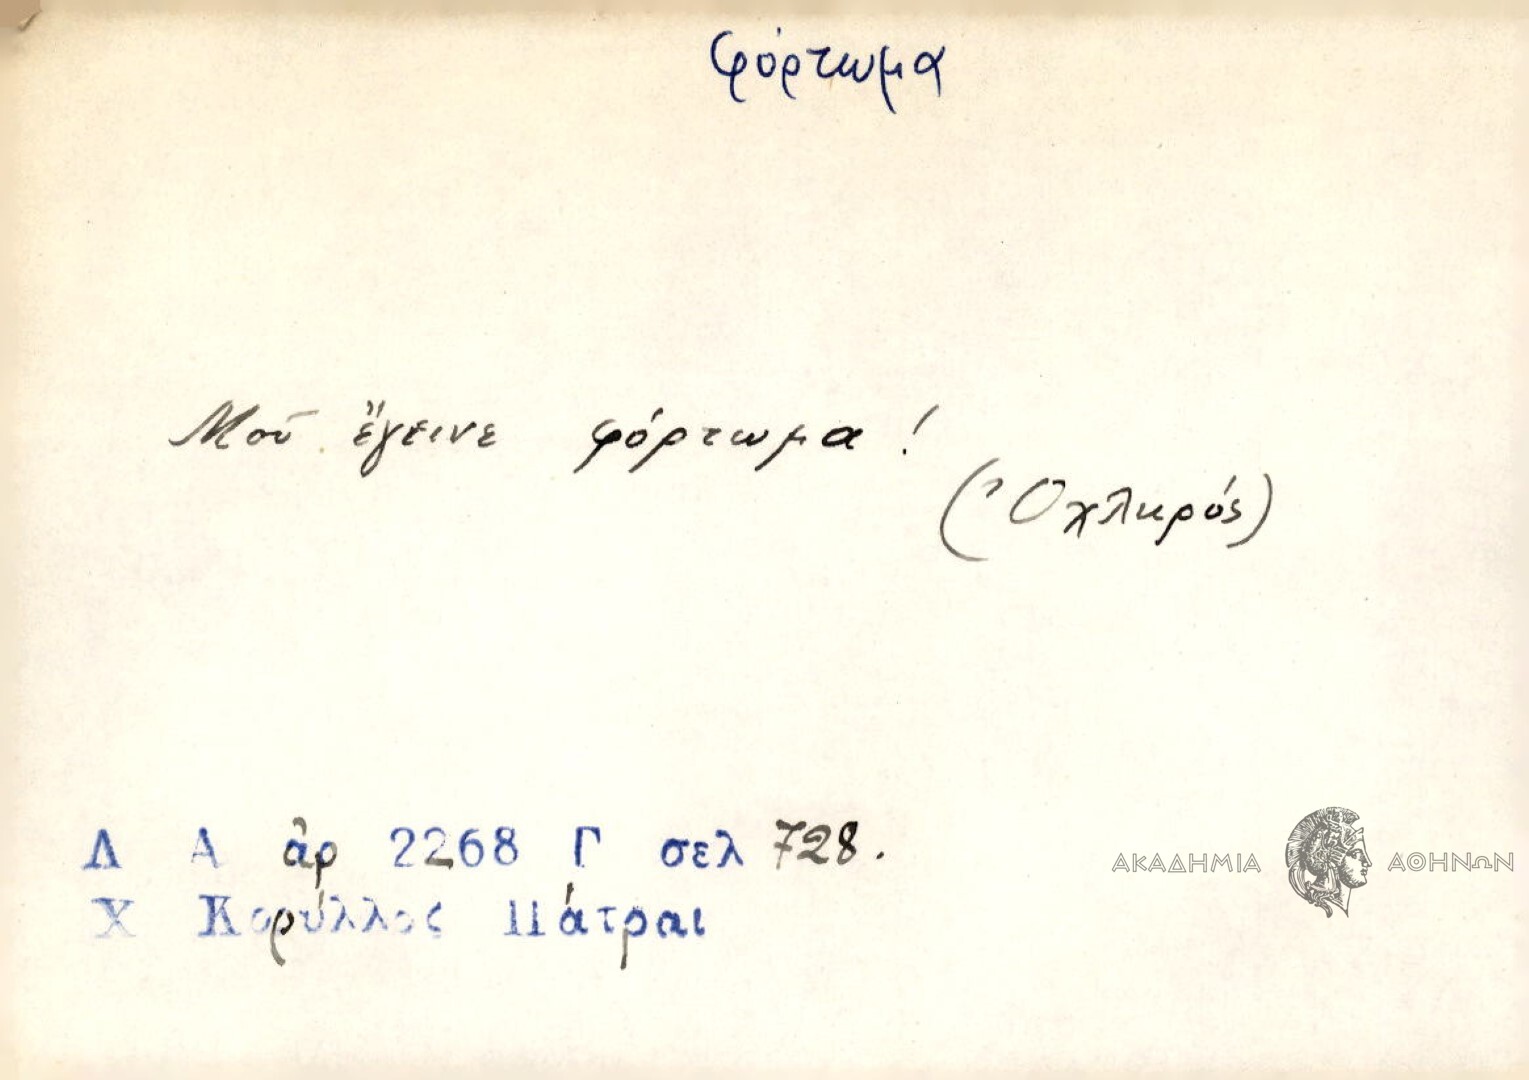 φόρτωμα
Μοῦ ἔγεινε φόρτωμα!
(Ὀχληρός)
Λ Α ἀρ 2268 Γ σελ 728.
Χ Κορύλλος Πάτραι
ΑΚΑΔΗΜΙΑ ΑΘΗΝΩΝ